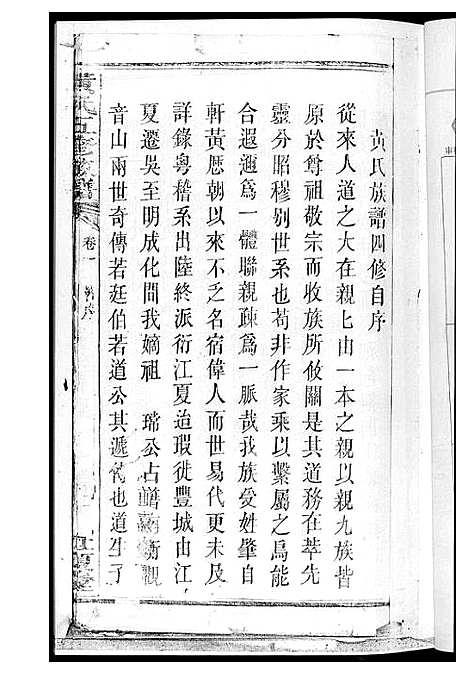 黃氏族譜四修自序
從來人道之大在親匕由一本之親以親九族皆
原於尊祖敬宗而收族所攸關是其道務在萃先
靈分昭穆別世系也苟非作家乘以繫屬之烏能
合遐邇爲一體聯親疎爲一脈哉我族受姓肇自
軒黃歷朝以來不乏名宿偉人而世易代更未及
詳錄粵稽系出陸終派衍江夏迨瑕徙豐城由江
夏遷吳至明成化間我嫡祖 瑞公占籍 衡觀
音山兩世奇傳若廷伯若道公其遞 也道生了
黃氏五修族譜
卷一